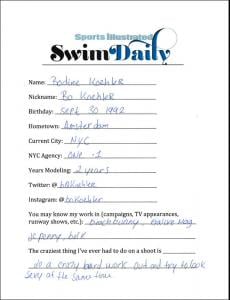 Sports Illustrated
Swim Daily
Name: Bodine Koehler
Nickname: Bo Koehler
Birthday: Sept 30 1992
Hometown: Amsterdam
Current City: NYC
NYC Agency: ONE .1
Years Modeling: 2 years
Twitter @ boKoehler
Instagram: @ boKoehler
You may know my work in (campaigns, TV appearances,
runway shows, etc.): beach bunny,
jc penny, belk
The craziest thing I've ever had to do on a shoot is
do a crazy hard work out and try to look
sexy at the same time